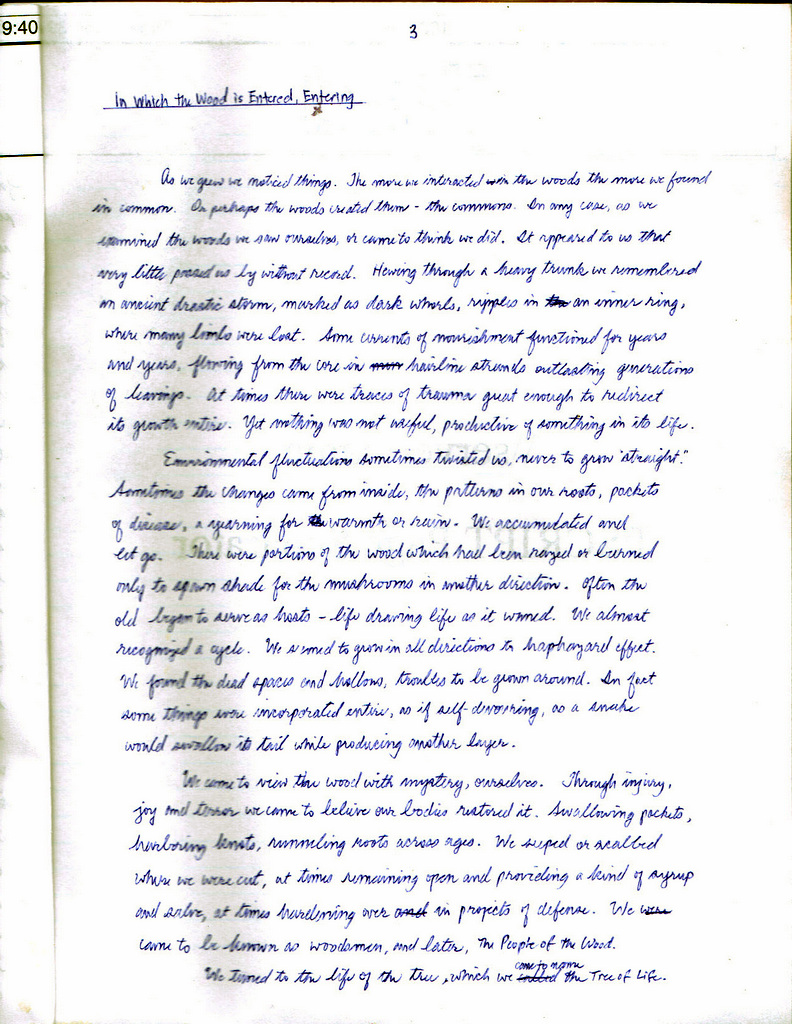 9:40
3
In Which the Wood is Entered, Entering
As we grew we noticed things. The more we interacted with the woods the more we found
in common. Or perhaps the woods created them - the commons. In any case, as we
examined the woods we saw ourselves, or came to think we did. It appeared to us that
very little passed us by without record. Hewing through a heavy trunk we remembered
an ancient drastic storm, marked as dark whorls, ripples in an inner ring,
where many limbs were lost. Some currents of nourishment functioned for years
and years, flowing from the core in hairline strands outlasting generations
of leavings. At times there were traces of trauma great enough to redirect
its growth entire. Yet nothing was not useful, productive of something in its life.
Environmental fluctuations sometimes twisted us, never to grow "straight."
Sometimes the changes came from inside, the patterns in our roots, pockets
of disease, a yearning for warmth or rain. We accumulated and
let go. There were portions of the wood which had been razed or burned
only to spawn shade for the mushrooms in another direction. Often the
old began to serve as hosts - life drawing life as it waned. We almost
recognized a cycle. We seemed to grow in all directions to haphazard effect.
We found the dead spaces and hollows, troubles to be grown around. In fact
some things were incorporated entire, as if self-devouring, as a snake
would swallow its tail while producing another layer.
We came to view the wood with mystery, ourselves. Through injury,
joy and terror we came to believe our bodies restored it. Swallowing pockets,
harboring knots, runneling roots across ages. We seeped or scabbed
where we were cut, at times remaining open and providing a kind of syrup
and salve, at times hardening over in projects of defense. We
came to be known as woodsmen, and later, The People of the Wood.
We turned to the life of the tree, which we came to name the Tree of Life.